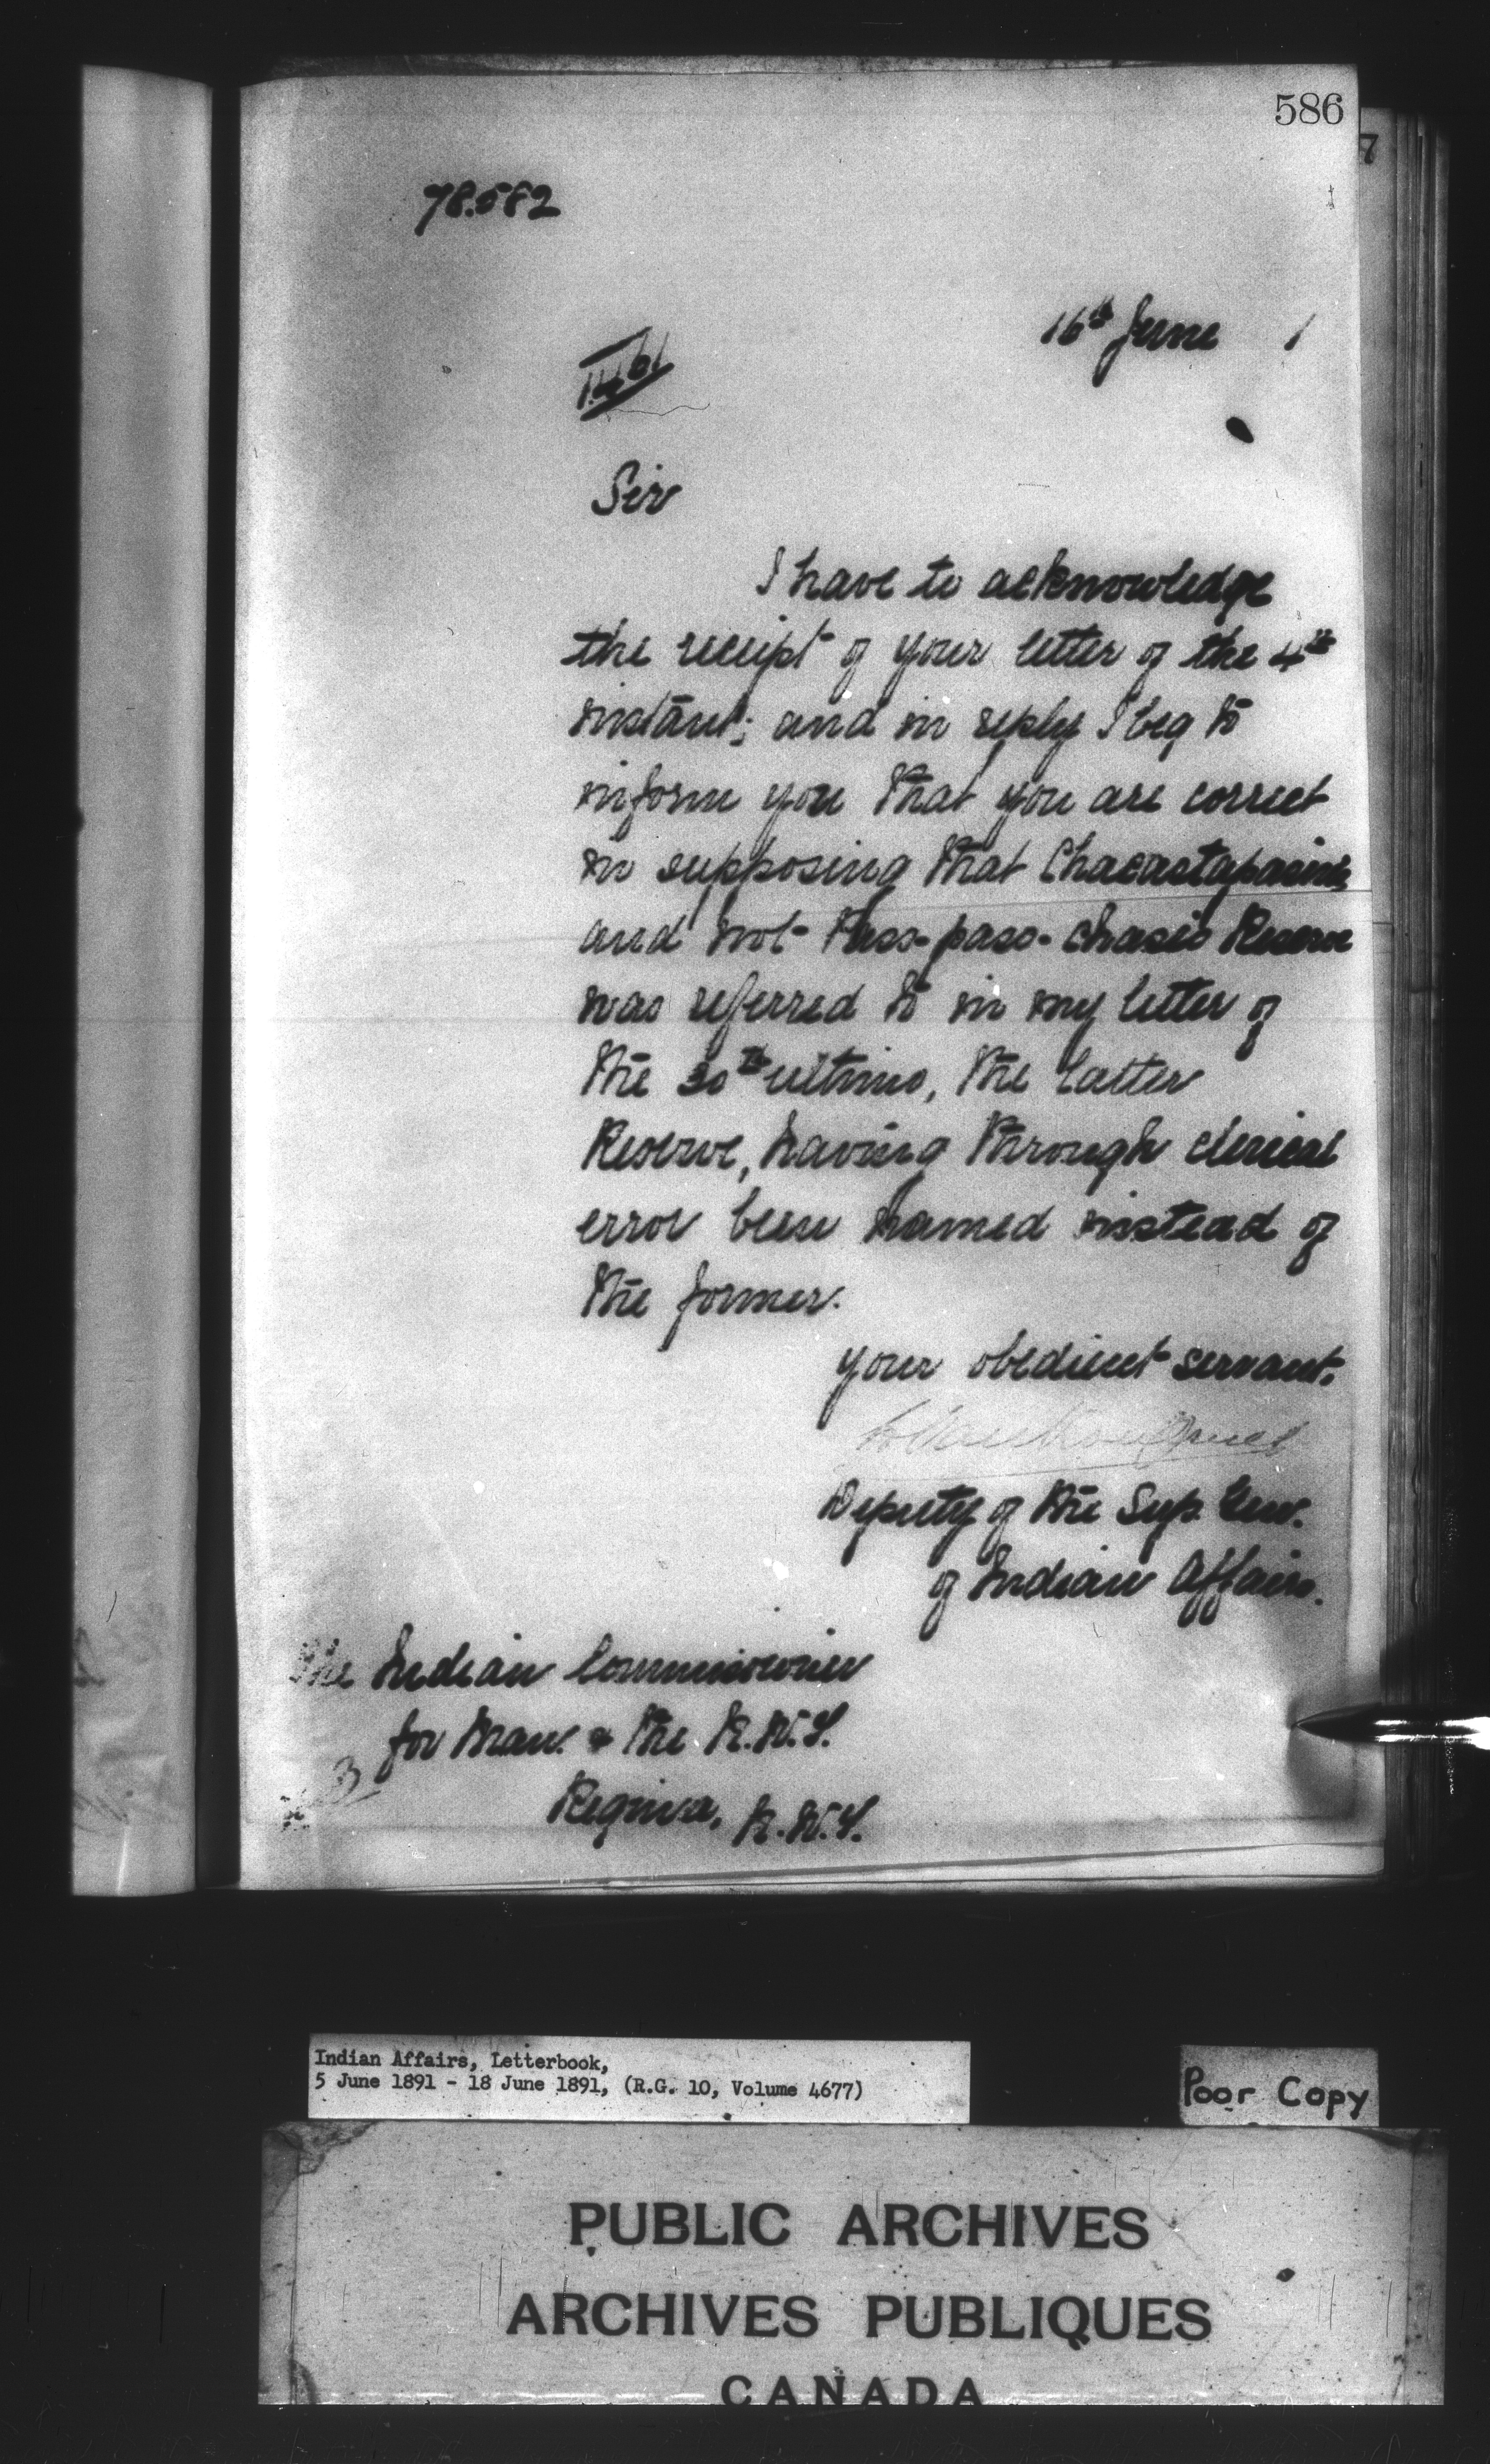 586
7
78.582
16th June 1
Sir
I have to acknowledge
the receipt of your letter of the 4th
instant; and in reply I beg to
inform you that you are correct
in supposing that Chacastapasin's
and not Pass-pass-chase's Reserve
was referred to in my letter of
the 30th ultimo, the latter
Reserve, having through clerical
error been named instead of
the former.
your obedient servant.
L Vankoughnet
Deputy of the Sup. Gen.
of Indian Affairs.
The Indian Commissioner
for Man. & the N.W.T.
Regina, N.W.T.
Indian Affairs, Letterbook,
5 June 1891 - 18 June 1891, (R.G. 10, Volume 4677)
Poor Copy
PUBLIC ARCHIVES
ARCHIVES PUBLIQUES
CANADA